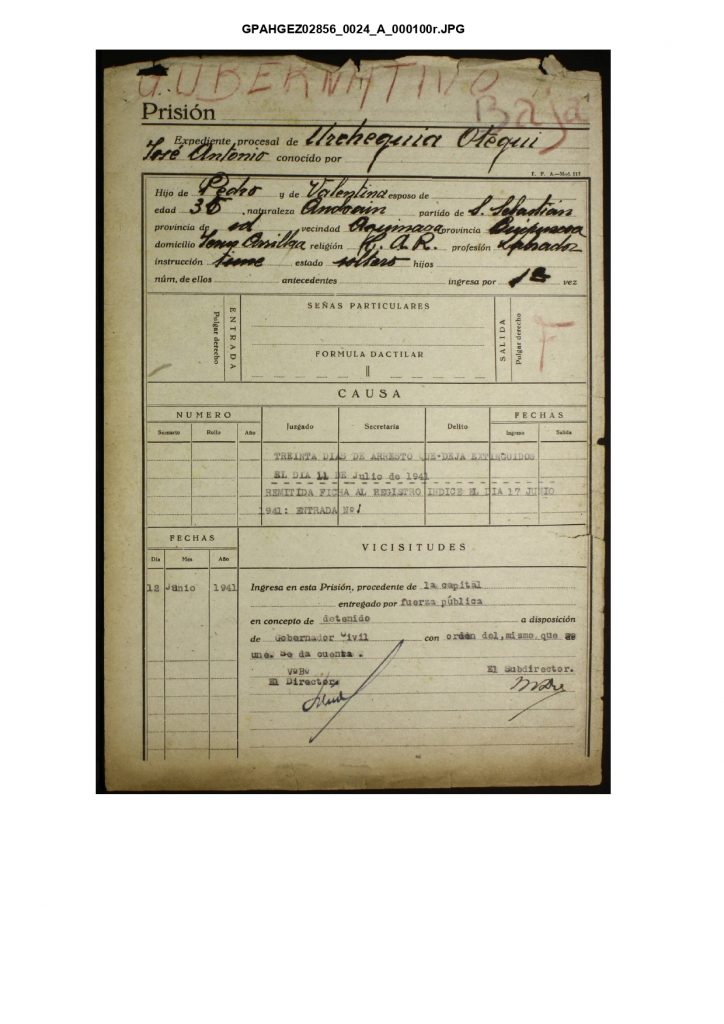 GPAHGEZ02856_0024_A_000100r.JPG
GUBERNATIVO
Baja
Prisión
Expediente procesal de Urchequia Otegui
José Antonio conocido por
E. P. A.—Mod. 111
Hijo de Pedro y de Valentina esposo de
edad 35 , naturaleza Andoain partido de S. Sebastián
provincia de id vecindad provincia Guipuzcoa
domicilio religión C. A. R. profesión Labrador
instrucción tiene estado soltero hijos
núm. de ellos antecedentes ingresa por 1ª vez
ENTRADA
Pulgar derecho
SEÑAS PARTICULARES
FORMULA DACTILAR
SALIDA
Pulgar derecho
F
CAUSA
NUMERO FECHAS
Sumario Rollo Año Juzgado Secretaría Delito Ingreso Salida
TREINTA DIAS DE ARRESTO QUE-DEJA EXTINGUIDOS
EL DIA 11 DE Julio de 1941
REMITIDA FICHA AL REGISTRO INDICE EL DIA 17 JUNIO
1941: ENTRADA Nº1
FECHAS
VICISITUDES
Día Mes Año
12 Junio 1941 Ingresa en esta Prisión, procedente de la capital
entregado por fuerza pública
en concepto de detenido a disposición
de Gobernador Civil con orden del, mismo que se
une. Se da cuenta .
VºBº El Subdirector.
El Director,